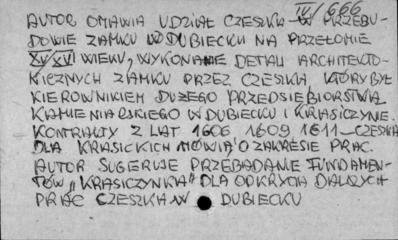 IV/666
AUTOR OMAWIA UDZIAŁ CZESZKA W PRZEBU-
DOWIE ZAMKU W DUBIECKU NA PRZEŁOMIE
XV/XVI WIEKU, WYKONANIE DETALI ARCHITEKTO-
NICZNYCH ZAMKU PRZEZ CZESZKA KTÓRY BYŁ
KIEROWNIKIEM DUŻEGO PRZEDSIĘBIORSTWA
KAMIENIARSKIEGO W DUBIECKU I KRASICZYNIE.
KONTRAKTY Z LAT 1606 1609 1611 – CZESZKA
DLA KRASICKICH MÓWIĄ O ZAKRESIE PRAC.
AUTOR SUGERUJE PRZEBADANIE FUNDAMEN-
TÓW "KRASICZYNKA" DLA ODKRYCIA DALSZYCH
PRAC CZESZKA W DUBIECKU